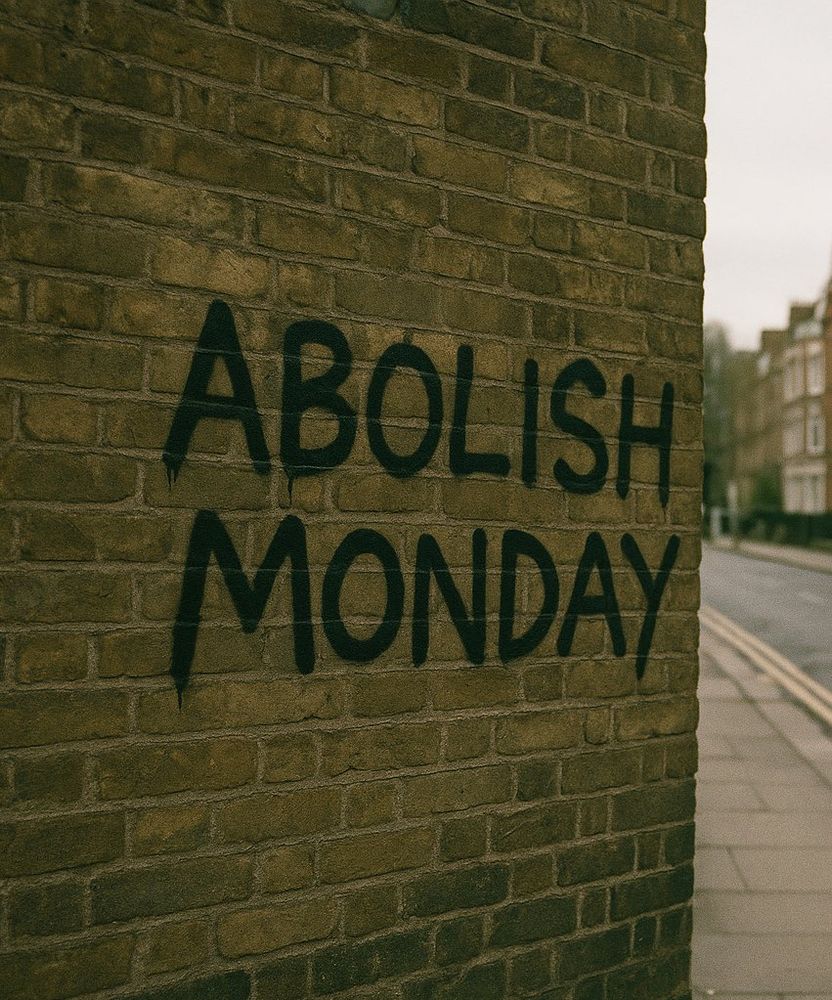 ABOLISH
MONDAY